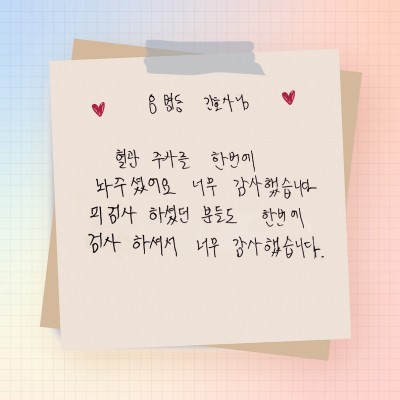 응 병동 간호사님
혈관 주사를 한번에
놔주셨어요 너무 감사했습니다
피검사 하셨던 분들도 한번에
검사 하셔서 너무 감사했습니다.